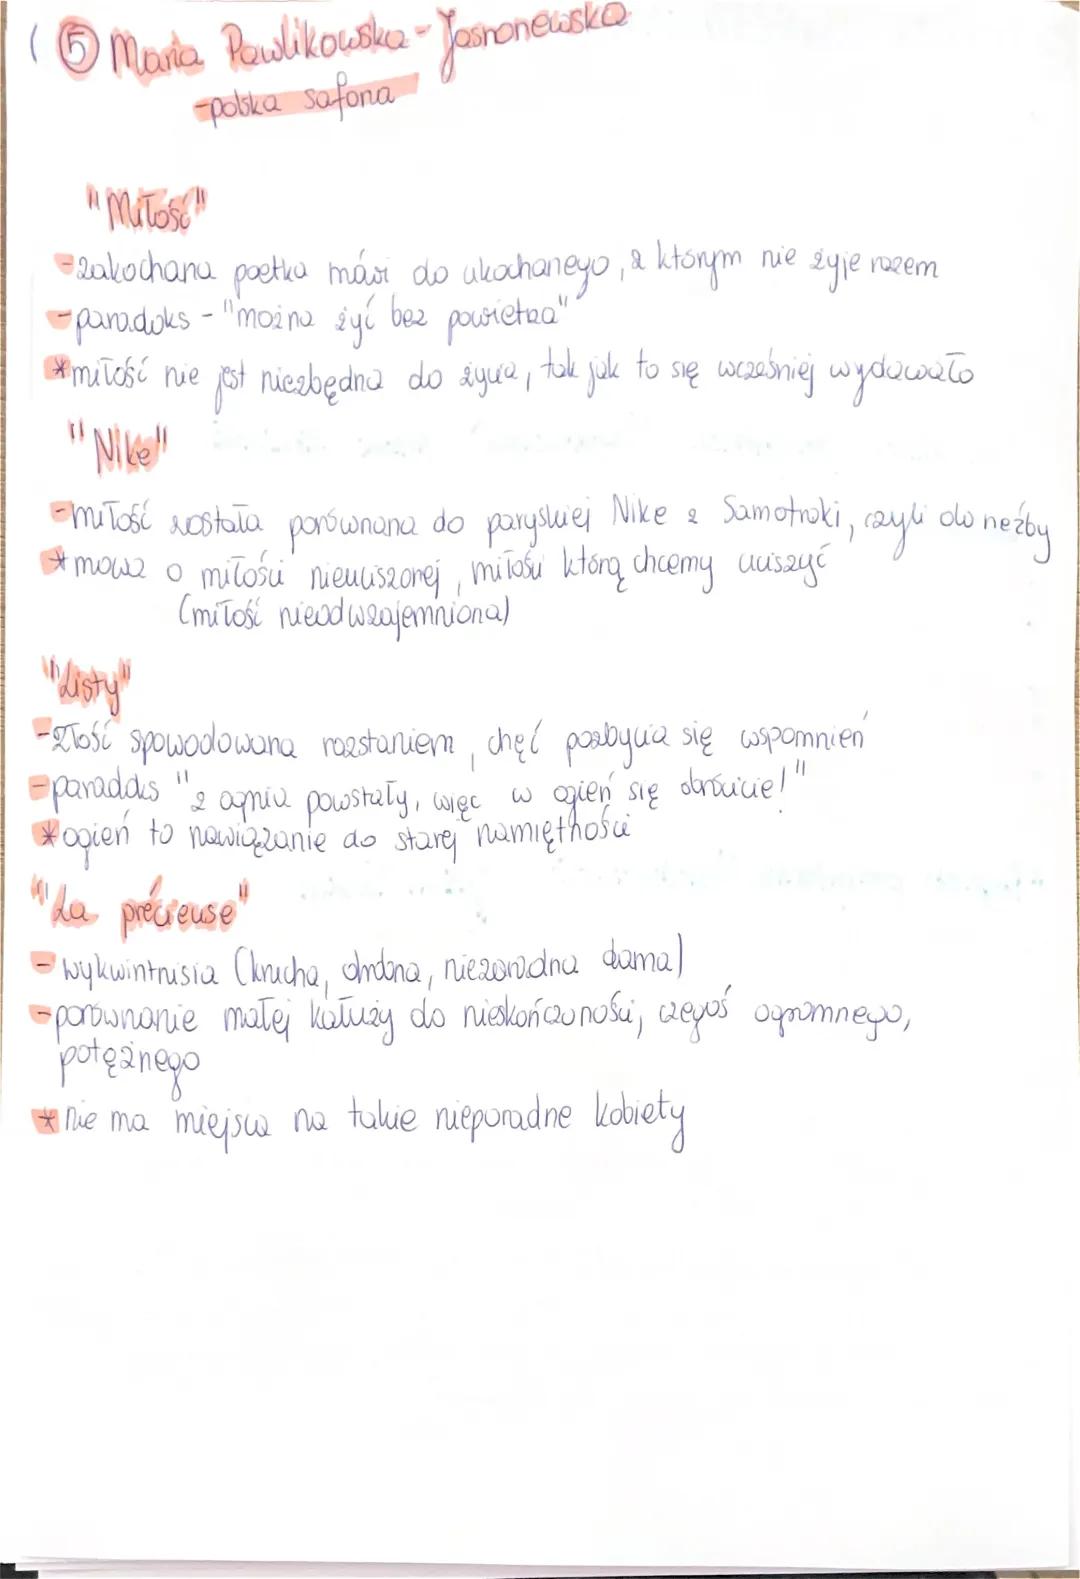 (5) Maria Pawlikowska-Jasnorzewska
-polska safona
"Miłość"
-zakochana poetka mówi do ukochanego, z którym nie żyje razem
-paradoks - "można żyć bez powietrza"
*miłość nie jest niezbędna do życia, tak jak to się wcześniej wydawało
"Nike"
-miłość została porównana do paryskiej Nike z Samotraki, czyli do rzeźby
*mowa o miłości nieuciszonej, miłości którą chcemy uciszyć
(miłość nieodwzajemniona)
"Listy"
-złość spowodowana rozstaniem, chęć pozbycia się wspomnień
-paradoks "z ognia powstały, więc w ogień się obrócicie!"
*ogień to nawiązanie do starej namiętności
"La précieuse"
-wykwintnisia (krucha, drobna, niezaradna dama)
-porównanie małej kałuży do nieskończoności, czegoś ogromnego,
potężnego
*nie ma miejsca na takie nieporadne kobiety